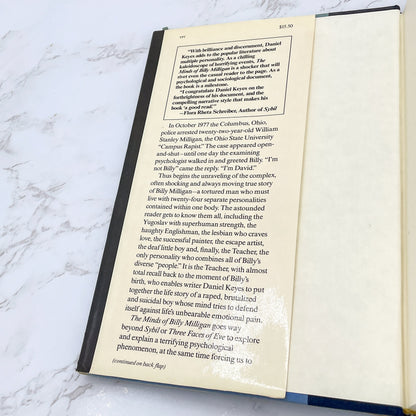 $15.50
"With brilliance and discernment, Daniel
Keyes adds to the popular literature about
multiple personality. As a chilling
kaleidoscope of horrifying events, The
Minds of Billy Milligan is a shocker that will
rivet even the casual reader to the page. As a
psychological and sociological document,
the book is a milestone.
"I congratulate Daniel Keyes on the
forthrightness of his document, and the
compelling narrative style that makes his
book 'a good read.'"
—Flora Rheta Schreiber, Author of Sybil
In October 1977 the Columbus, Ohio,
police arrested twenty-two-year-old William
Stanley Milligan, the Ohio State University
"Campus Rapist." The case appeared open-
and-shut—until one day the examining
psychologist walked in and greeted Billy. "I'm
not Billy" came the reply. "I'm David."
Thus begins the unraveling of the complex,
often shocking and always moving true story
of Billy Milligan—a tortured man who must
live with twenty-four separate personalities
contained within one body. The astounded
reader gets to know them all, including the
Yugoslav with superhuman strength, the
haughty Englishman, the lesbian who craves
love, the successful painter, the escape artist,
the deaf little boy and, finally, the Teacher, the
only personality who combines all of Billy's
diverse "people." It is the Teacher, with almost
total recall back to the moment of Billy's
birth, who enables writer Daniel Keyes to put
together the life story of a raped, brutalized
and suicidal boy whose mind tries to defend
itself against life's unbearable emotional pain.
The Minds of Billy Milligan goes way
beyond Sybil or Three Faces of Eve to explore
and explain a terrifying psychological
phenomenon, at the same time forcing us to
(continued on back flap)